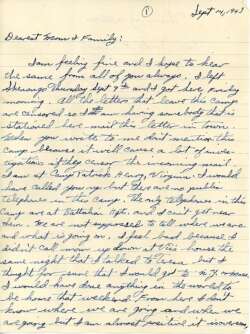 ① Sept 14, 1943
Dearest Mom & Family:
I am feeling fine and I hope to hear
the same from all of you always. I left
Shenango Thursday Sept 9th and I got here Friday
morning. All the letters that leave this Camp
are censored so I am having somebody that is
stationed here mail this letter in town.
When you write to me don't mention this
Camp because it will cause a lot of
if they censor the incoming mail.
I am at Camp Patrick Henry, Virginia. I would
have called you up but there are no public
telephones in this Camp. The only telephones in this
Camp are at Battalion Hqts. and I can't get near
them. We are not supposed to tell where we are
and what is going on. I feel bad because I
didn't call mom up down at house the
same night that I talked to but I
thought for sure that I would get to N.Y. &
I would have done anything in the world to
be home that weekend. From here I don't
know where we are going and when we
are going but I am almost positive it won't be